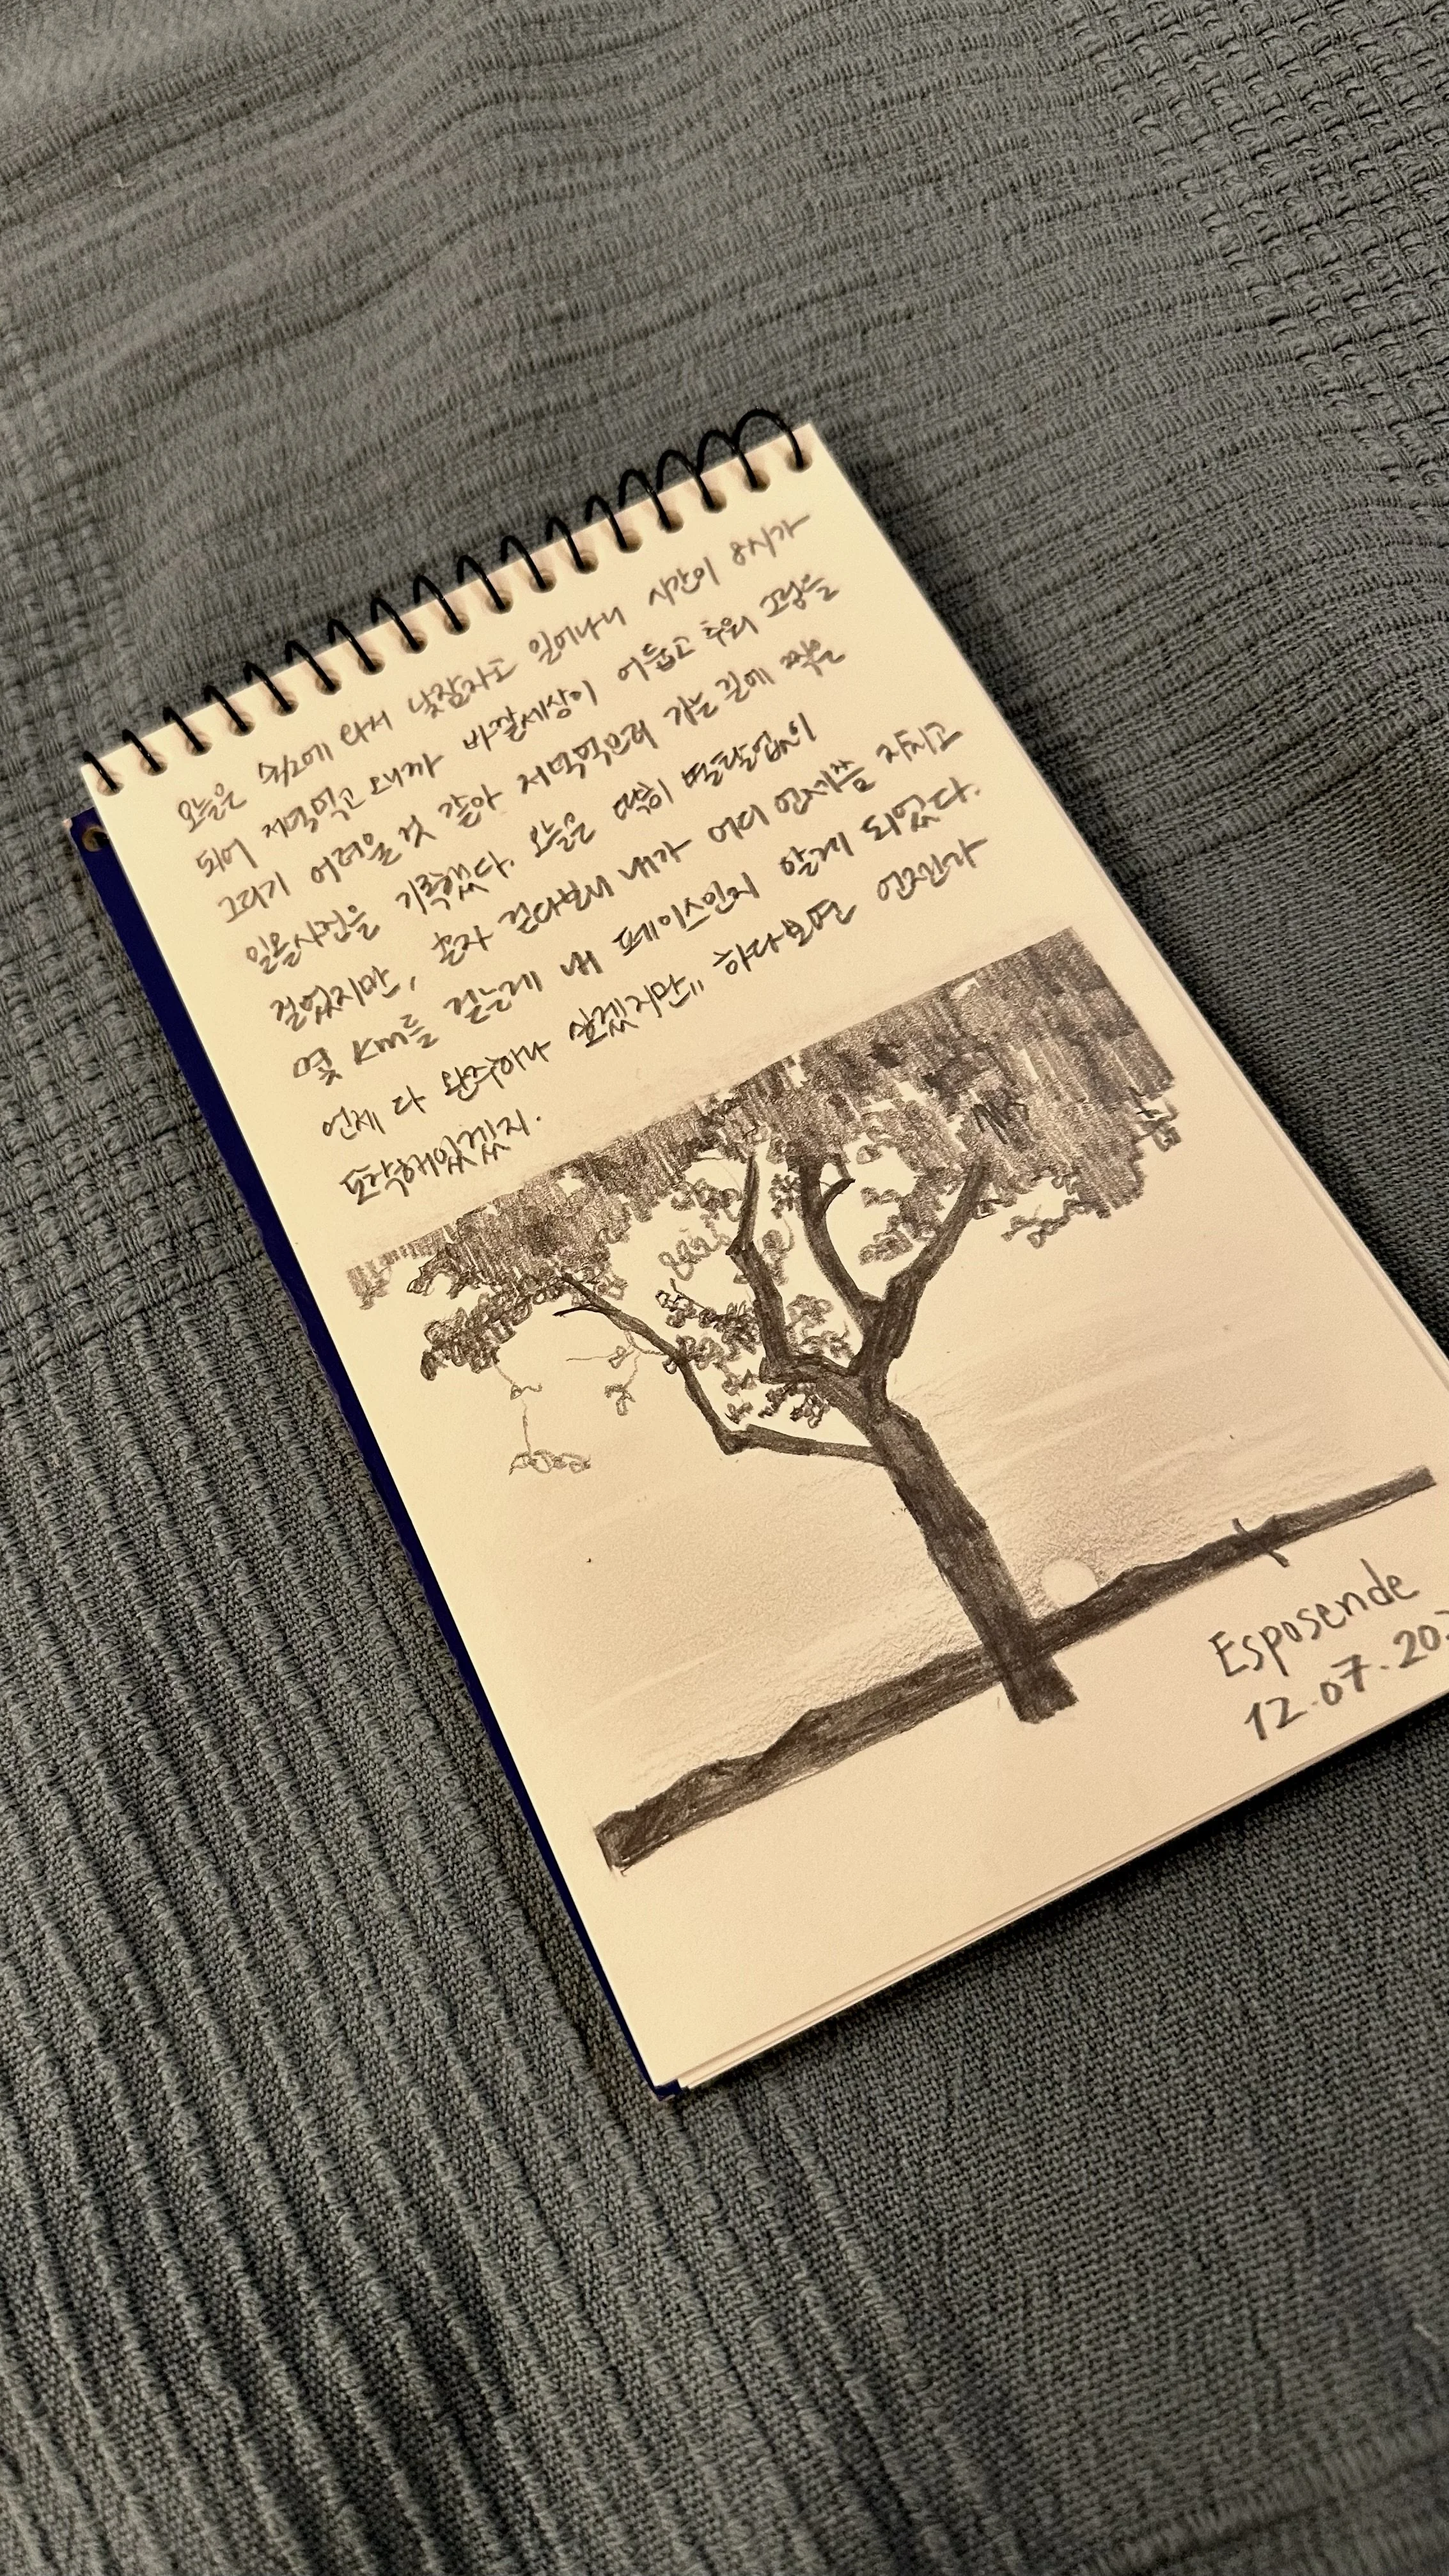 오늘은 숙소에 와서 낮잠자고 일어나니 시간이 8시가
되어 저녁먹고 오니까 바깥세상이 어둡고 추워 그림을
그리기 어려울 것 같아 저녁먹으러 가는 길에 찍은
일몰사진을 기록했다. 오늘은 딱히 별탈없이
걸었지만, 혼자 걷다보니 내가 어디 언제쯤 지치고
몇 km를 걷는게 내 페이스인지 알게 되었다.
언제 다 완주하나 싶겠지만 하다보면 언젠간
도착해있겠지.
Esposende
12.07.